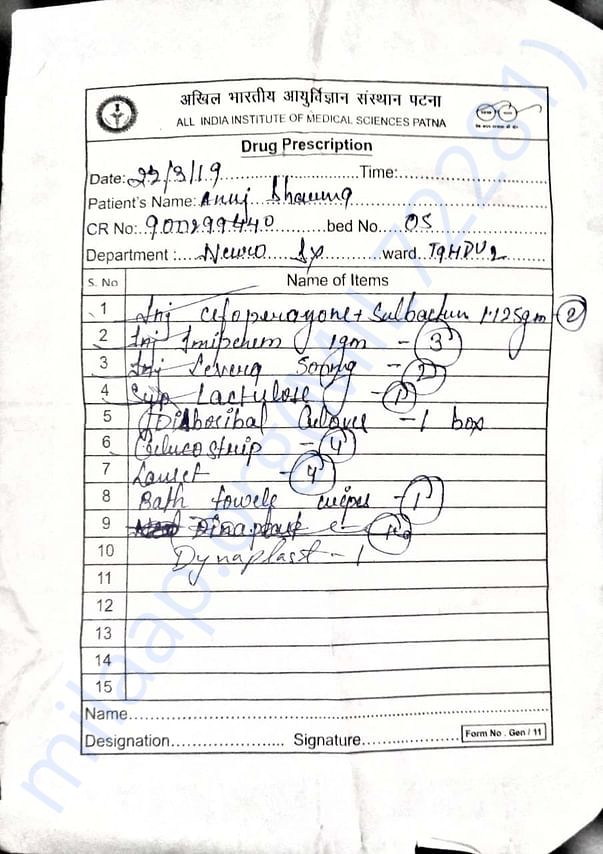 अखिल भारतीय आयुर्विज्ञान संस्थान पटना
ALL INDIA INSTITUTE OF MEDICAL SCIENCES PATNA
Drug Prescription
Date: 22/3/19 Time:
Patient's Name: Anuj
CR No: 900299440 bed No. 05
Department : Neuro Sx ward
S. No Name of Items
1 Inj Cefoperazone + Sulbactum 1.125gm 2
2 Inj Imipenem 1gm - 3
3 Inj 500mg - 2
4 Syp Lactulose - 1
5 - 1 box
6 Gluco strip - 4
7 Lanset - 4
8 Bath towels wipes - 1
9
10 Dynaplast - 1
11
12
13
14
15
Name
Designation Signature Form No . Gen / 11
milaap.org(MIL72281)